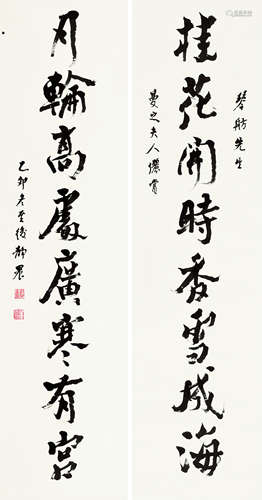 琴舫先生
桂花開時香雪成海
曼之夫人儷賞
月輪高處廣寒有宮
乙卯冬至後靜農